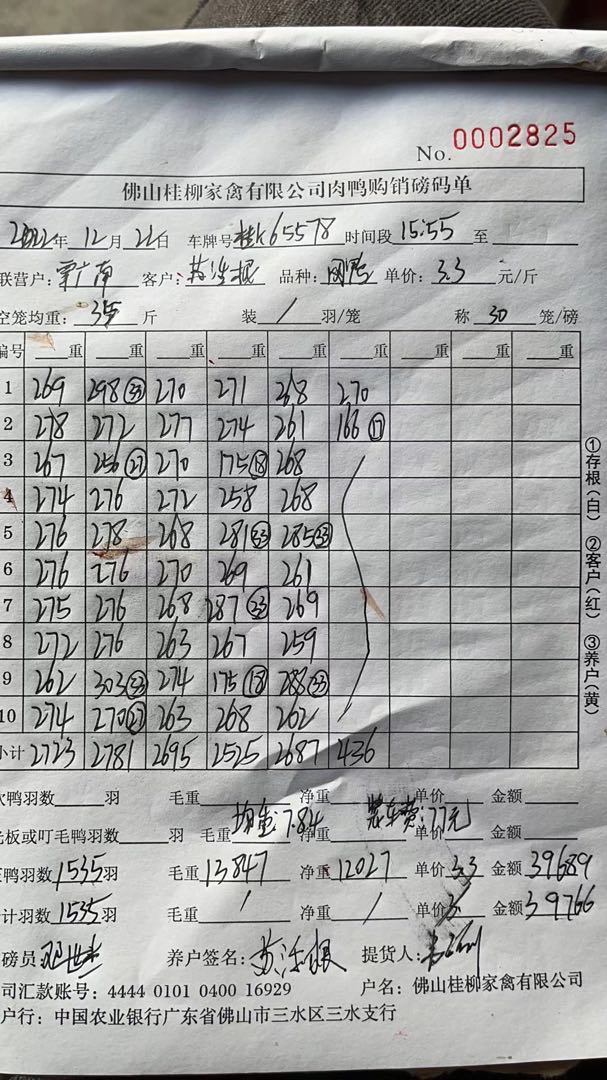 No. 0002825
佛山桂柳家禽有限公司肉鸭购销磅码单
2022年 12月 22日 车牌号 桂K65578 时间段 15:55 至
联营户: 广南 客户: 苏 根 品种: 单价: 3.3 元/斤
空笼均重: 35 斤 装 / 羽/笼 称 30 笼/磅
编号 重 重 重 重 重 重 重 重 重
1 269 298(33) 270 271 268 270
2 278 272 277 274 261 166(17)
3 267 256(27) 270 175(18) 268
4 274 276 272 258 268
5 276 278 268 281(33) 285(33)
6 276 276 270 269 261
7 275 276 268 287(33) 269
8 272 276 263 267 259
9 262 303(33) 274 175(18) 288(33)
10 274 270(27) 263 268 262
小计 2723 2781 2695 2525 2687 436
鸭羽数 羽 毛重 净重 单价 金额
均重:7.84 装车费:77元
板或叮毛鸭羽数 羽 毛重 净重 单价 金额
鸭羽数 1535 羽 毛重 13847 净重 12027 单价 3.3 金额 39689
计羽数 1535 羽 毛重 / 净重 / 单价 金额 39766
磅员 养户签名: 苏 根 提货人:
司汇款账号: 4444 0101 0400 16929 户名: 佛山桂柳家禽有限公司
户行: 中国农业银行广东省佛山市三水区三水支行
①存根(白) ②客户(红) ③养户(黄)